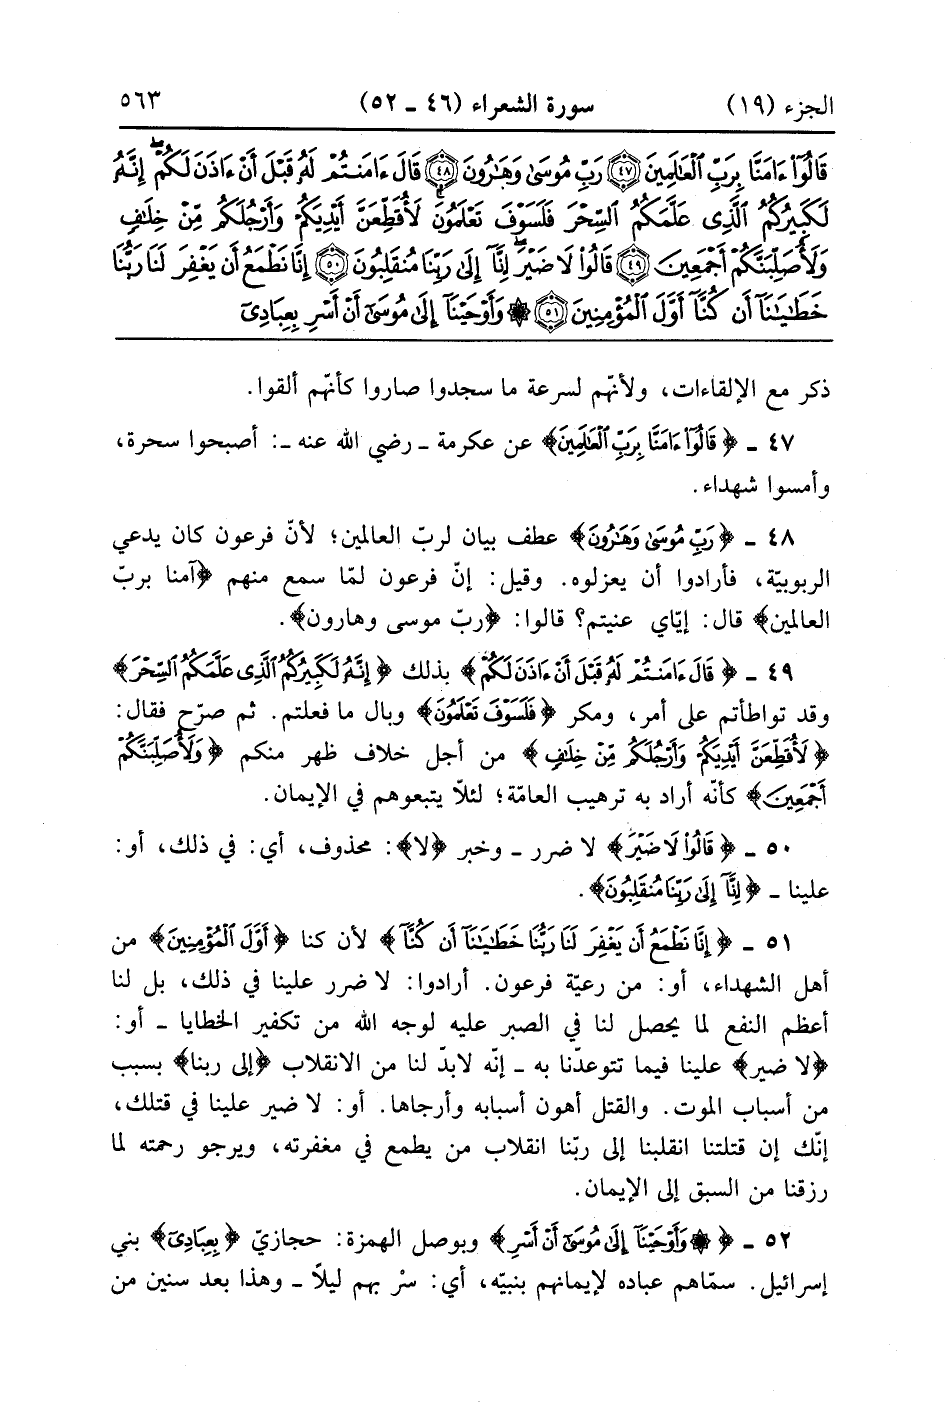 الجزء (١٩) سورة الشعراء (٤٦ ـ ٥٢) ٥٦٣
قَالُوٓا۟ ءَامَنَّا بِرَبِّ ٱلْعَٰلَمِينَ ٤٧ رَبِّ مُوسَىٰ وَهَٰرُونَ ٤٨ قَالَ ءَامَنتُمْ لَهُۥ قَبْلَ أَنْ ءَاذَنَ لَكُمْ ۖ إِنَّهُۥ
لَكَبِيرُكُمُ ٱلَّذِى عَلَّمَكُمُ ٱلسِّحْرَ فَلَسَوْفَ تَعْلَمُونَ ۚ لَأُقَطِّعَنَّ أَيْدِيَكُمْ وَأَرْجُلَكُم مِّنْ خِلَٰفٍ
وَلَأُصَلِّبَنَّكُمْ أَجْمَعِينَ ٤٩ قَالُوا۟ لَا ضَيْرَ ۖ إِنَّآ إِلَىٰ رَبِّنَا مُنقَلِبُونَ ٥٠ إِنَّا نَطْمَعُ أَن يَغْفِرَ لَنَا رَبُّنَا
خَطَٰيَٰنَآ أَن كُنَّآ أَوَّلَ ٱلْمُؤْمِنِينَ ٥١ ۞ وَأَوْحَيْنَآ إِلَىٰ مُوسَىٰٓ أَنْ أَسْرِ بِعِبَادِىٓ
ذكر مع الإلقاءات، ولأنّهم لسرعة ما سجدوا صاروا كأنّهم ألقوا.
٤٧ ـ ﴿قَالُوٓا۟ ءَامَنَّا بِرَبِّ ٱلْعَٰلَمِينَ﴾ عن عكرمة ـ رضي الله عنه ـ: أصبحوا سحرة،
وأمسوا شهداء.
٤٨ ـ ﴿رَبِّ مُوسَىٰ وَهَٰرُونَ﴾ عطف بيان لربّ العالمين؛ لأنّ فرعون كان يدعي
الربوبيّة، فأرادوا أن يعزلوه. وقيل: إنّ فرعون لمّا سمع منهم ﴿آمنا بربّ
العالمين﴾ قال: إيّاي عنيتم؟ قالوا: ﴿ربّ موسى وهارون﴾.
٤٩ ـ ﴿قَالَ ءَامَنتُمْ لَهُۥ قَبْلَ أَنْ ءَاذَنَ لَكُمْ﴾ بذلك ﴿إِنَّهُۥ لَكَبِيرُكُمُ ٱلَّذِى عَلَّمَكُمُ ٱلسِّحْرَ﴾
وقد تواطأتم على أمر، ومكر ﴿فَلَسَوْفَ تَعْلَمُونَ﴾ وبال ما فعلتم. ثم صرّح فقال:
﴿لَأُقَطِّعَنَّ أَيْدِيَكُمْ وَأَرْجُلَكُم مِّنْ خِلَٰفٍ﴾ من أجل خلاف ظهر منكم ﴿وَلَأُصَلِّبَنَّكُمْ
أَجْمَعِينَ﴾ كأنّه أراد به ترهيب العامّة؛ لئلّا يتبعوهم في الإيمان.
٥٠ ـ ﴿قَالُوا۟ لَا ضَيْرَ﴾ لا ضرر ـ وخبر ﴿لا﴾: محذوف، أي: في ذلك، أو:
علينا ـ ﴿إِنَّآ إِلَىٰ رَبِّنَا مُنقَلِبُونَ﴾.
٥١ ـ ﴿إِنَّا نَطْمَعُ أَن يَغْفِرَ لَنَا رَبُّنَا خَطَٰيَٰنَآ أَن كُنَّآ﴾ لأن كنا ﴿أَوَّلَ ٱلْمُؤْمِنِينَ﴾ من
أهل الشهداء، أو: من رعيّة فرعون. أرادوا: لا ضرر علينا في ذلك، بل لنا
أعظم النفع لما يحصل لنا في الصبر عليه لوجه الله من تكفير الخطايا ـ أو:
﴿لا ضير﴾ علينا فيما تتوعدّنا به ـ إنّه لابدّ لنا من الانقلاب ﴿إلى ربنا﴾ بسبب
من أسباب الموت. والقتل أهون أسبابه وأرجاها. أو: لا ضير علينا في قتلك،
إنّك إن قتلتنا انقلبنا إلى ربّنا انقلاب من يطمع في مغفرته، ويرجو رحمته لما
رزقنا من السبق إلى الإيمان.
٥٢ ـ ﴿۞ وَأَوْحَيْنَآ إِلَىٰ مُوسَىٰٓ أَنْ أَسْرِ﴾ وبوصل الهمزة: حجازيّ ﴿بِعِبَادِىٓ﴾ بني
إسرائيل. سمّاهم عباده لإيمانهم بنبيّه، أي: سرْ بهم ليلًا ـ وهذا بعد سنين من